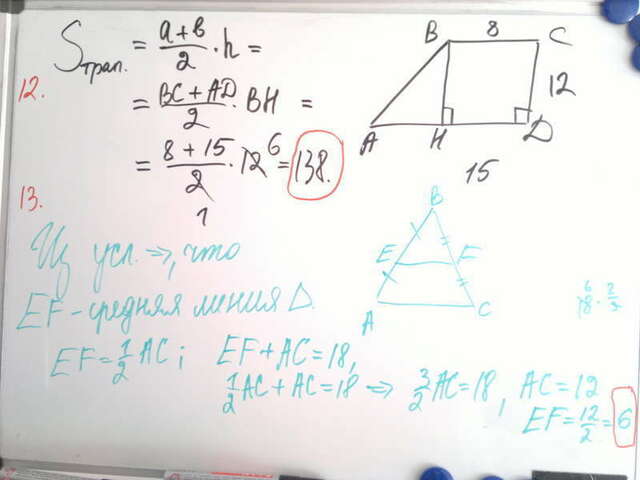 12.
S трап. = a+b/2 · h =
= BC+AD/2 · BH =
= 8+15/2 · 12 6 = 138.
1
B 8 C
12
A H D
15
13.
Из усл. ⇒, что
EF – средняя линия Δ.
EF = 1/2 AC; EF + AC = 18,
1/2 AC + AC = 18 ⇒ 3/2 AC = 18, AC = 12
EF = 12/2 = 6
B
E F
A C
6
18 · 2/3